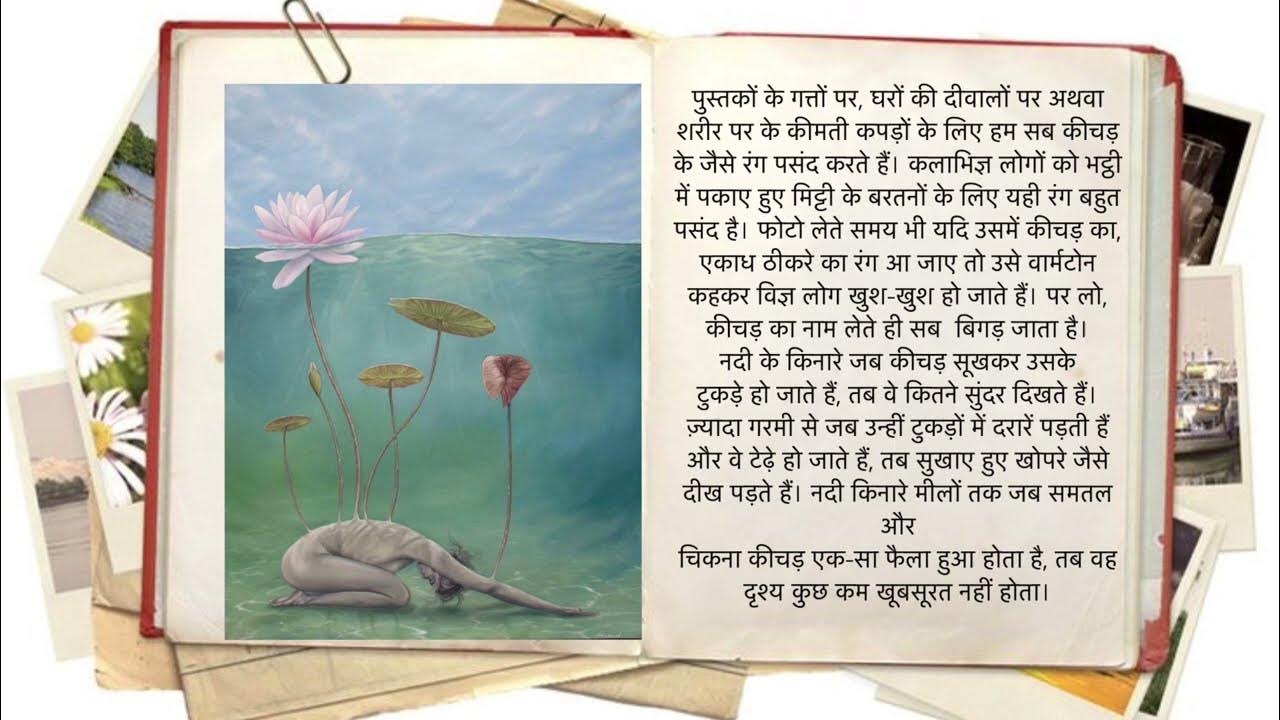 पुस्तकों के गत्तों पर, घरों की दीवालों पर अथवा
शरीर पर के कीमती कपड़ों के लिए हम सब कीचड़
के जैसे रंग पसंद करते हैं। कलाभिज्ञ लोगों को भट्ठी
में पकाए हुए मिट्टी के बरतनों के लिए यही रंग बहुत
पसंद है। फोटो लेते समय भी यदि उसमें कीचड़ का,
एकाध ठीकरे का रंग आ जाए तो उसे वार्मटोन
कहकर विज्ञ लोग खुश-खुश हो जाते हैं। पर लो,
कीचड़ का नाम लेते ही सब बिगड़ जाता है।
नदी के किनारे जब कीचड़ सूखकर उसके
टुकड़े हो जाते हैं, तब वे कितने सुंदर दिखते हैं।
ज़्यादा गरमी से जब उन्हीं टुकड़ों में दरारें पड़ती हैं
और वे टेढ़े हो जाते हैं, तब सुखाए हुए खोपरे जैसे
दीख पड़ते हैं। नदी किनारे मीलों तक जब समतल
और
चिकना कीचड़ एक-सा फैला हुआ होता है, तब वह
दृश्य कुछ कम खूबसूरत नहीं होता।